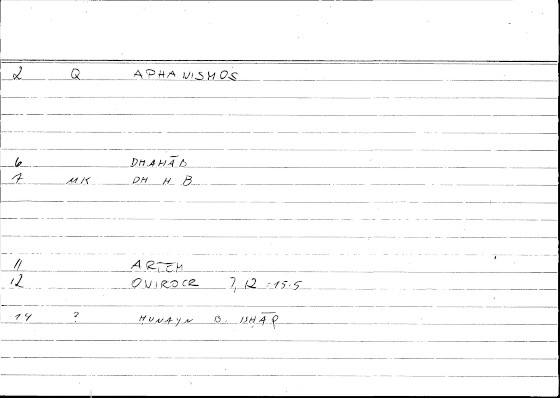 2 Q APHANISMOS
6 DHAHĀB
7 MK DH H B
11 ARTEM
12 OVIROCR 7, 12 - 15.5
14 ? HUNAYN B. ISHĀQ